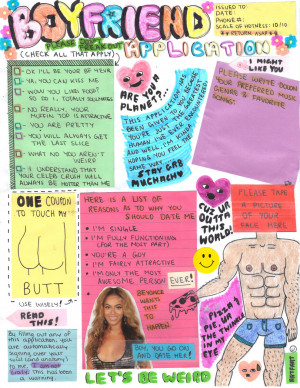 BOYFRIEND
PLEASE DON'T FREAK OUT
APPLICATION
(CHECK ALL THAT APPLY)
ISSUED TO:
DATE:
PHONE #:
SCALE OF HOTNESS: 10/10
** RETURN ASAP **
I MIGHT
LIKE YOU
OK I'LL BE YOUR BF 4EVA
YA, YOU CAN KISS ME
WOW YOU LIKE FOOD?
SO DO I, TOTALLY SOULMATES
NO REALLY, YOUR
MUFFIN TOP IS ATTRACTIVE
YOU ARE PRETTY
YOU WILL ALWAYS GET
THE LAST SLICE
WHAT NO YOU AREN'T
WEIRD
I UNDERSTAND THAT
YOUR CELEB CRUSH WILL
ALWAYS BE HOTTER THAN ME
ARE YOU A
PLANET?..
THIS APPLICATION HAS
BEEN GIVEN BECAUSE
YOU'RE JUST THE GREATEST
HUMAN I'VE EVER ENCOUNTERED
AND WELL, I'M KINDA
HOPING YOU FEEL THE
SAME WAY.
STAY GR8
MUCHACHO
PLEASE WRITE DOWN
YOUR PREFERRED MUSIC
GENRE & FAVORITE
SONGS!
CUZ UR
OUTTA
THIS WORLD!
ONE COUPON
TO TOUCH MY
BUTT
USE WISELY!
HERE IS A LIST OF
REASONS AS TO WHY YOU
SHOULD DATE ME
I'M SINGLE
I'M FULLY FUNCTIONING
(FOR THE MOST PART)
YOU'RE A GUY
I'M FAIRLY ATTRACTIVE
I'M ONLY THE MOST
AWESOME PERSON EVER!
BEYONCE
WANTS
THIS
TO
HAPPEN
BOY, YOU GO ON
AND DATE HER!
PLEASE TAPE
A PICTURE
OF YOUR
FACE HERE
PIZZA &
PIE, UR
THE TWINKLE
IN MY
EYE
READ
THIS!
By filling out any of this
application, you
are automatically
signing over your
soul (and anatomy)
to me.
This has been
a warning.
LET'S BE WEIRD